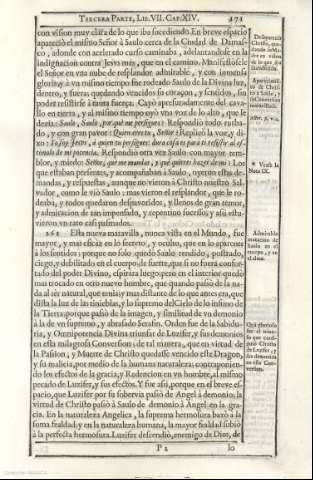 TERCERA PARTE, LIB. VII. CAP. XIV. 171
con vision muy clara de lo que iba sucediendo. En breve espacio
apareciò el mismo Señor à Saulo cerca de la Ciudad de Damas-
co, adonde con acelerado curso caminaba, adelantandose en la
indignacion contra Jesvs más, que en el camino. Manifestòsele
el Señor en vna nube de resplandor admirable, y con inmensa
gloria; y à vn mismo tiempo fue rodeado Saulo de la Divina luz,
dentro, y fuera; quedando vencidos su coraçon, y sentidos, sin
poder resistirse à tanta fuerça. Cayò apresuradamente del cavallo
en tierra, y al mismo tiempo oyò vna voz de lo alto, que le
dezia: Saulo, Saulo, por què me persigues? Respondiò todo turba-
do, y con gran pavor: Quien eres tu, Señor? Replicò la voz, y di-
xo: Yo soy Jesvs, à quien tu persigues: dura cosa es para ti resistir al es-
timulo de mi potencia. Respondiò otra vez Saulo con mayor temb-
lor, y miedo: Señor, què me mandas, y què quieres hazer de mi? Los
que estaban presentes, y acompañaban à Saulo, oyeron estas de-
mandas, y respuestas, aunque no vieron à Christo nuestro Sal-
vador, como le viò Saulo: mas vieron el resplandor, que le ro-
deaba, y todos quedaron despavoridos, y llenos de gran temor,
y admiracion de tan impensado, y repentino sucesso; y assi estu-
vieron vn rato casi pasmados.
261 Esta nueva maravilla, nunca vista en el Mundo, fue
mayor, y mas eficàz en lo secreto, y oculto, que en lo aparente
à los sentidos: porque no solo quedò Saulo rendido, postrado,
ciego, y debilitado en el cuerpo de suerte, que si no fuera confor-
tado del poder Divino, espirara luego; pero en el interior quedò
mas trocado en otro nuevo hombre, que quando passò de la na-
da al sèr natural, que tenia; y mas distante de lo que antes era, que
dista la luz de las tinieblas, y lo supremo del Cielo de lo infimo de
la Tierra; porque passò de la imagen, y similitud de vn demonio
à la de vn supremo, y abrasado Serafin. Orden fue de la Sabidu-
ria, y Omnipotencia Divina triunfar de Luzifer, y sus demonios
en esta milagrosa Conversion; de tal manera, que en virtud de
la Passion, y Muerte de Christo quedasse vencido este Dragon,
y su malicia, por medio de la humana naturaleza; contraponien-
do los efectos de la gracia, y Redencion en vn hombre, al mismo
pecado de Luzifer, y sus efectos. Y fue assi, porque en el breve es-
pacio, que Luzifer por su sobervia passò de Angel à demonio; la
virtud de Christo passò à Saulo de demonio à Angel en la gra-
cia. En la naturaleza Angelica, la suprema hermosura baxò à la
suma fealdad; y en la naturaleza humana, la mayor fealdad subiò
à la perfecta hermosura. Luzifer descendiò, enemigo de Dios, de
P 2 lo
Aparicion
de Christo
à Saulo, y
su Conversion
maravillosa.
Actor. 9. v. 4.
* Vease la
Nota IX.
Admirable
mutacion de
Saulo en el
cuerpo, y en
el alma.